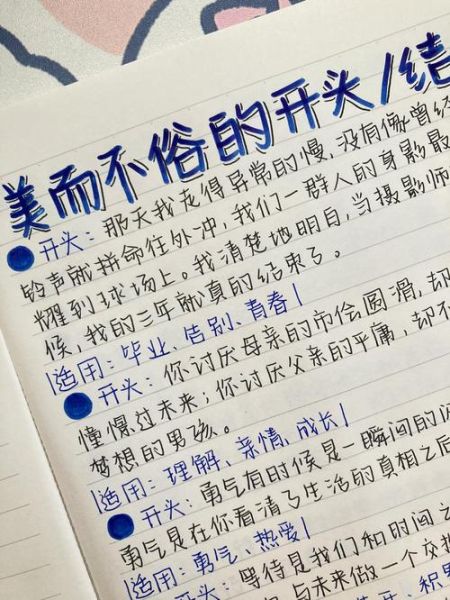 美而不俗的开头/结
开头：那天我走得异常的慢，没有像曾经
铃声就拼命往外冲，我们一群人的身影最
耀到球场上。我清楚地明白，当摄影师
候，我的三年就真的结束了。
|适用：毕业、告别、青春|
开头：你讨厌母亲的市侩圆滑，却
憧憬过未来；你讨厌父亲的平庸，却不
梦想的男孩。
|适用：理解、亲情、成长|
开头：勇气有时候是一瞬间的
勇气是在你看清了生活的真相之后
|适用：勇气、热爱|
开头：等待是我们和时间之
与未来做一个交换